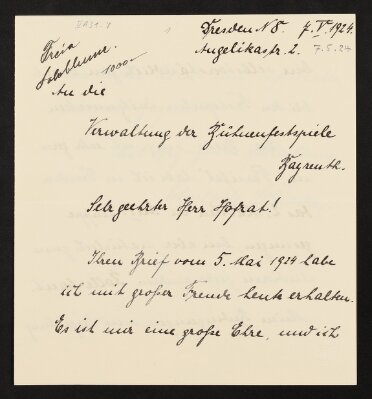 Dresden N 8. 7. V. 1924.
Angelikastr. 2. 7.5.24
Freia
1000.-
An die
Verwaltung der Bühnenfestspiele
Bayreuth.
Sehr geehrter Herr Hofrat!
Ihren Brief vom 5. Mai 1924 habe
ich mit großer Freude heute erhalten.
Es ist mir eine große Ehre, und ich